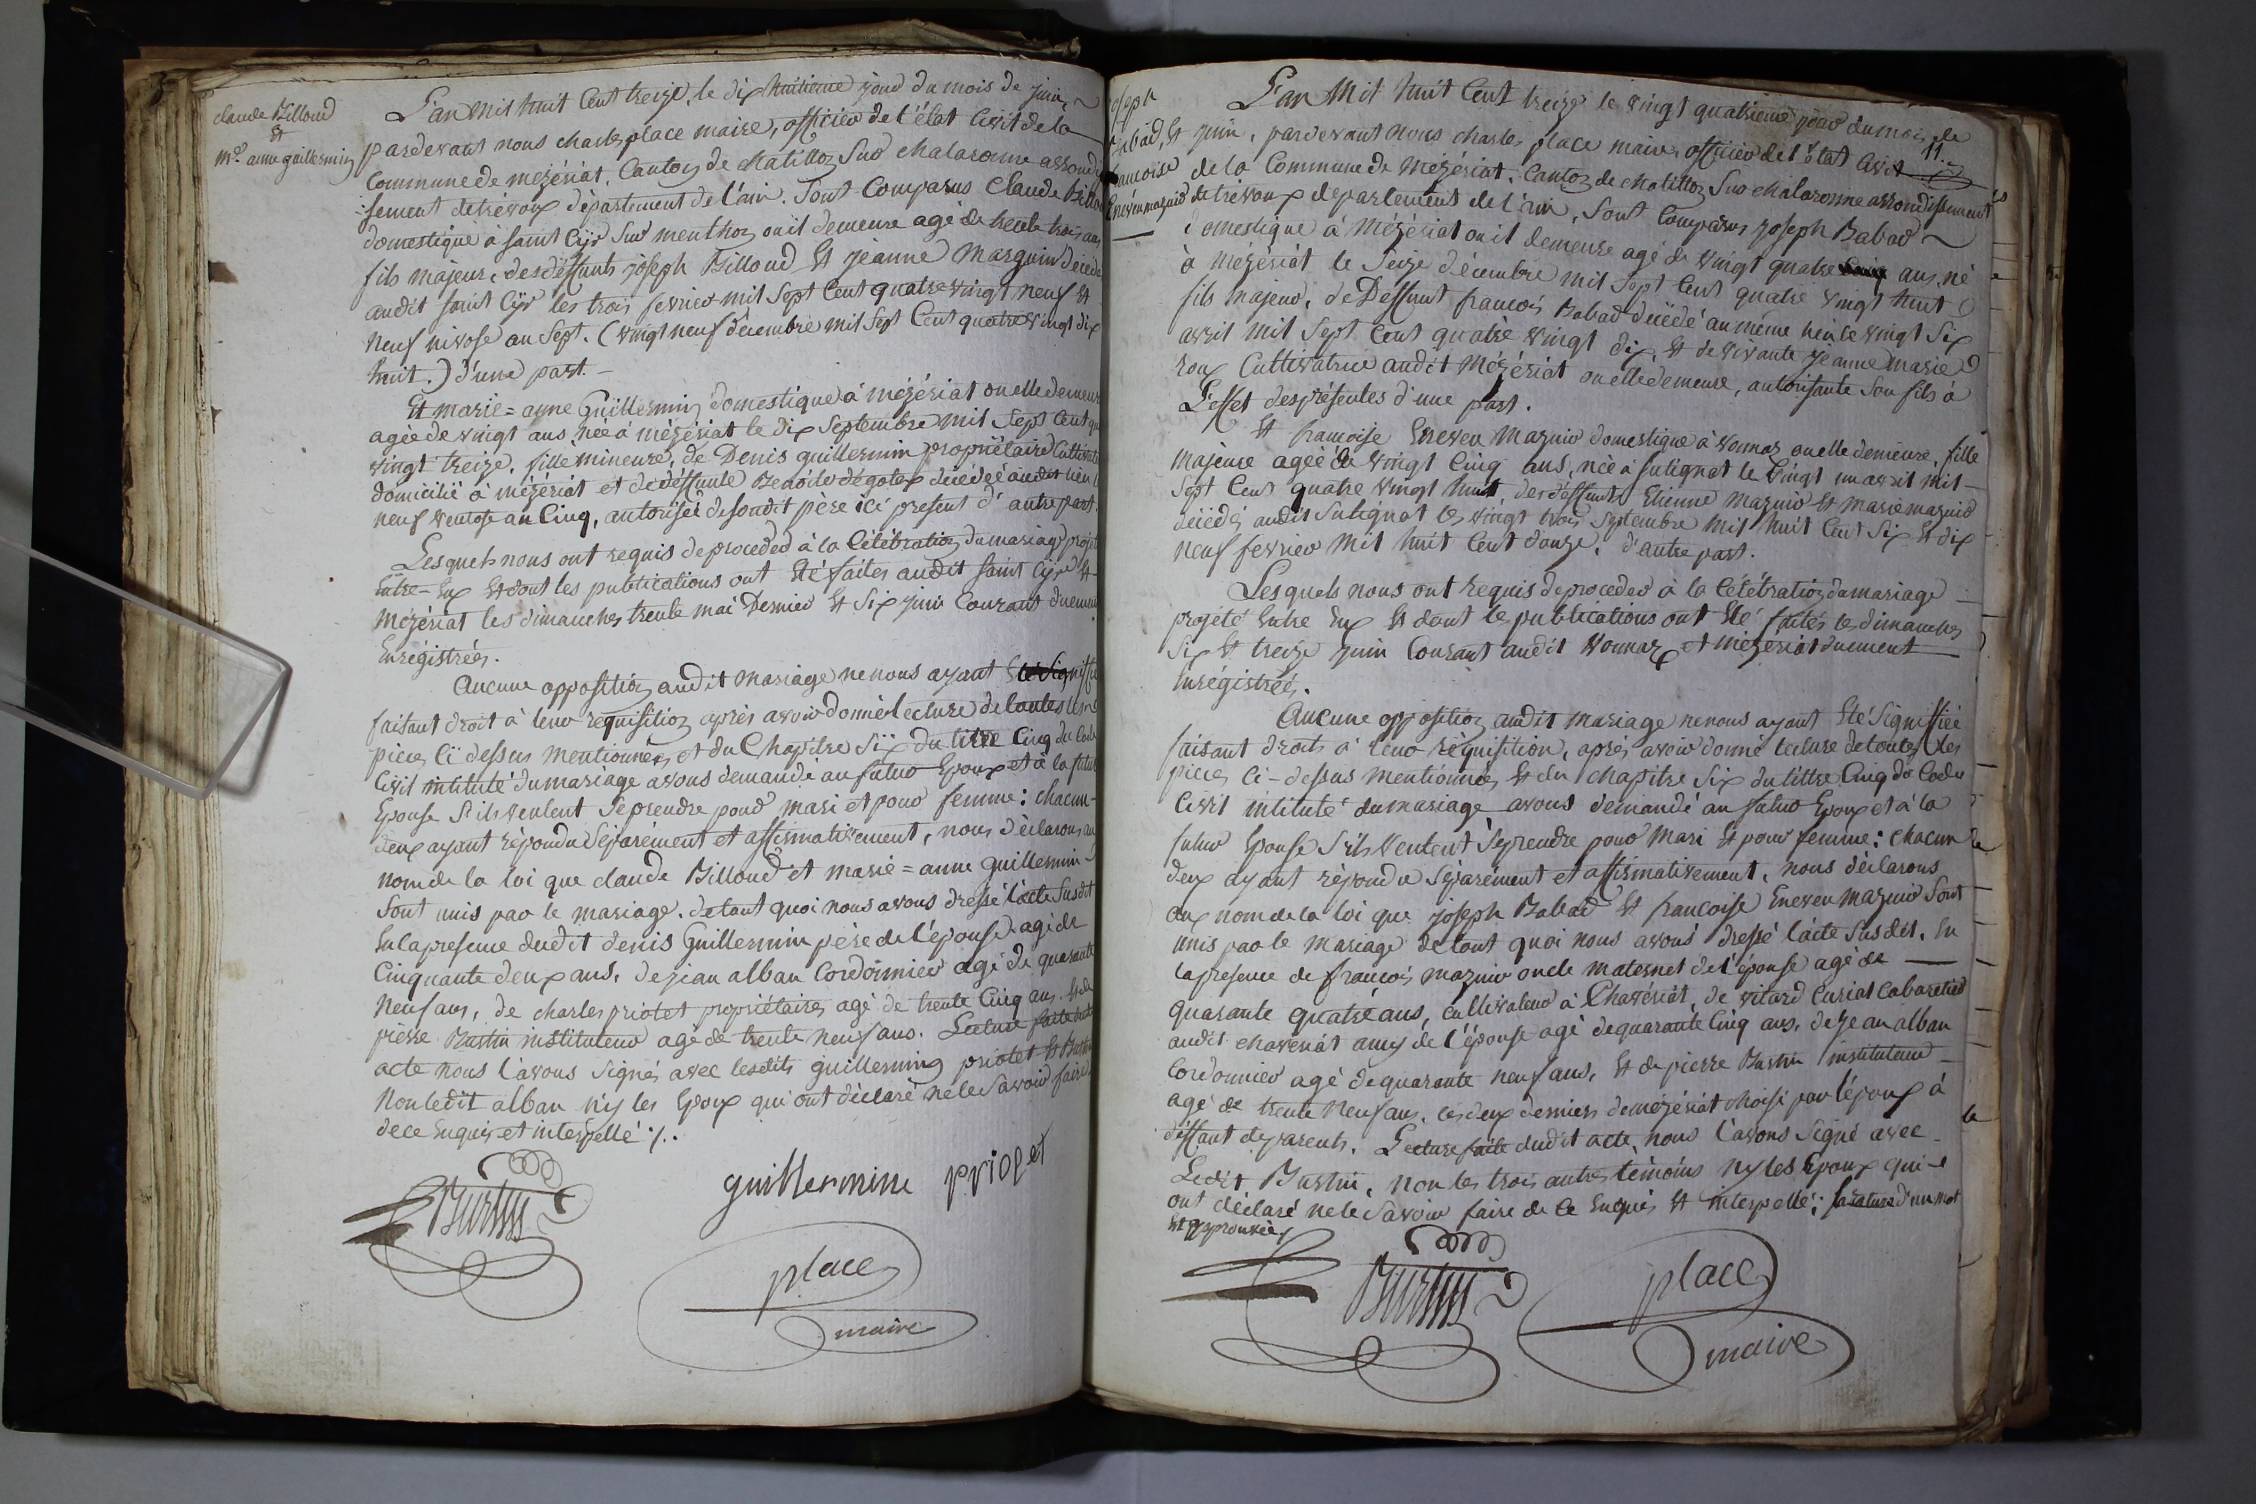 claude Billoud
Et
M.ie anne guillermin
L'an Mil huit Cent treize, le dix huitieme jour du mois de juin,
pardevant nous charles place maire, officier de l'état Civil de la
Commune de mézériat, Canton de chatillon Sur chalaronne arrondis
:sement de trévoux département de l'ain. Sont Comparus Claude Billoud
domestique à saint Cÿr Sur menthon ou il demeure agé de trente trois ans
fils majeur, des déffunts joseph Billoud Et jeanne Marguin décédés
audit saint Cÿr les trois fevrier mil Sept Cent quatre vingt neuf et
Neuf nivose an Sept. (vingt neuf décembre mil Sept Cent quatre vingt dix
huit.) d'une part. —
Et marie = anne Guillermin domestique à mézériat ou elle demeure
agée de vingt ans née à mézériat le dix Septembre mil Sept Cent qu
vingt treize, fille mineure, de Denis guillermin propriétaire Cultivate
domicilié à mézériat et de déffunte Benoite dégotex décédée audit lieu
neuf ventose an Cinq, autorisée de son dit père ici present d'autre part.
Lesquels nous ont requis de proceder à la Célébration du mariage projeté
Entre-Eux Et dont les publications ont Eté faites audit saint Cÿr Et
Mézériat les dimanches trente mai Dernier Et Six juin Courant duement
Enregistrées.
Aucune opposition audit mariage ne nous ayant Eté Signifiée
faisant droit à leur requisition après avoir donné lecture de toutes les
pieces Ci dessus mentionnées et du Chapitre Six du titre Cinq du Code
Civil intitulé du mariage avons demandé au futur Epoux et à la future
Epouse S'ils veulent Se prendre pour mari et pour femme: chacun
deux ayant répondu Séparément et affirmativement, nous déclarons au
nom de la loi que claude Billoud et marie = anne guillermin
Sont unis par le mariage. de tout quoi nous avons dressé l'acte Susdit
En la presence dudit denis Guillermin père de l'épouse agé de
Cinquante deux ans, de jean alban Cordonnier agé de quarante
Neuf ans, de charles priolet propriétaire agé de trente Cinq ans. Et de
pierre Burtin instituteur agé de trente neuf ans. Lecture faite dudit
acte nous l'avons Signés avec lesdits guillermin priolet Et Burtin
Non ledit alban n'y les Epoux qui ont déclaré ne le Savoir faire
de ce Enquis et interpellé ./.
Burtin
guillermine priolet
place
maire
joseph
Babad, Et
francoise
Eneveu mazuir
11.e
L'an Mil huit Cent treize le vingt quatrieme jour du mois de
juin, pardevant nous charles place maire officier de l'état Civil
de la Commune de mézériat, Canton de chatillon Sur chalaronne arrondissement
de trévoux departement de l'ain, Sont Comparus joseph Babad
domestique à mézériat ou il demeure agé de vingt quatre ans, né
à mézériat le Seize décembre mil Sept Cent quatre vingt huit
fils majeur, de Deffunt francois Babad décédé au même lieu le vingt Six
avril mil Sept Cent quatre vingt dix, Et de vivante jeanne marie
roux Cultivatrice audit Mézériat ou elle demeure, autorisante Son fils à
L'effet des présentes d'une part.
Et francoise Eneveu Mazuir domestique à vonnas ou elle demeure, fille
majeure agée de vingt Cinq ans, née à Sulignat le vingt un avril mil
Sept Cent quatre vingt huit, des déffunts Etienne Mazuir Et Marie mazuir
décédés audit Sulignat les vingt trois Septembre mil huit Cent Six Et dix
neuf fevrier Mil huit Cent douze, d'autre part.
Lesquels nous ont requis de proceder à la Célébration du mariage
projeté Entre Eux Et dont les publications ont Eté faites les dimanches
Six Et treize juin Courant audit Vonnas et mézériat duement
Enrégistrées.
Aucune opposition audit mariage ne nous ayant Eté Signiffiée
faisant droit à leur réquisition, après avoir donné lecture de toutes les
pieces Ci-dessus mentionnées Et du chapitre Six du tittre Cinq du Code
Civil intitulé du mariage avons demandé au futur Epoux et à la
futur Epouse S'ils veulent Se prendre pour Mari Et pour femme: Chacun
deux ayant répondu Séparément et affirmativement, nous déclarons
au nom de la loi que joseph Babad Et francoise Eneveu Mazuir Sont
unis par le mariage de tout quoi nous avons dressé l'acte Susdit. En
la presence de francois mazuir oncle maternel de l'épouse agé de
quarante quatre ans, cultivateur à Chavériat, de vitard Curiat Cabaretier
audit chaveriat amy de l'épouse agé de quarante Cinq ans, de jean alban
Cordonnier agé de quarante neuf ans, Et de pierre Burtin instituteur
agé de trente Neuf ans, les deux derniers de mézériat choisi par l'époux à
déffaut de parents. Lecture faite dudit acte nous l'avons Signé avec
Ledit Burtin, non les trois autres témoins ny les Epoux qui
ont déclaré ne le Savoir faire de Ce Enquis Et interpellé; la rature d'un mot
Et approuvée
Burtin
place
maire